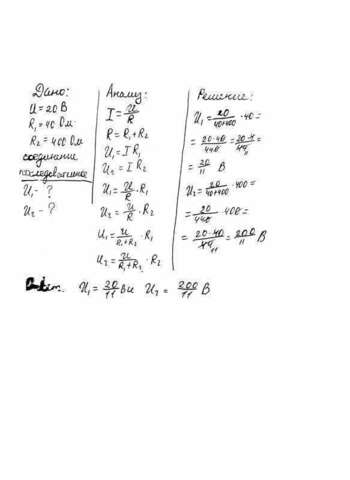 Дано:
U = 20 В
R₁ = 40 Ом
R₂ = 400 Ом
соединение
последовательное
U₁ - ?
U₂ - ?
Анализ:
I = U/R
R = R₁ + R₂
U₁ = I R₁
U₂ = I R₂
U₁ = U/R · R₁
U₂ = U/R · R₂
U₁ = U/(R₁+R₂) · R₁
U₂ = U/(R₁+R₂) · R₂
Решение:
U₁ = 20/(40+400) · 40 =
= 20·40/440 = 20·4/44 =
= 20/11 В
U₂ = 20/(40+400) · 400 =
= 20/440 · 400 =
= 20·40/44 11 = 200/11 В
U₁ = 20/11 В и U₂ = 200/11 В